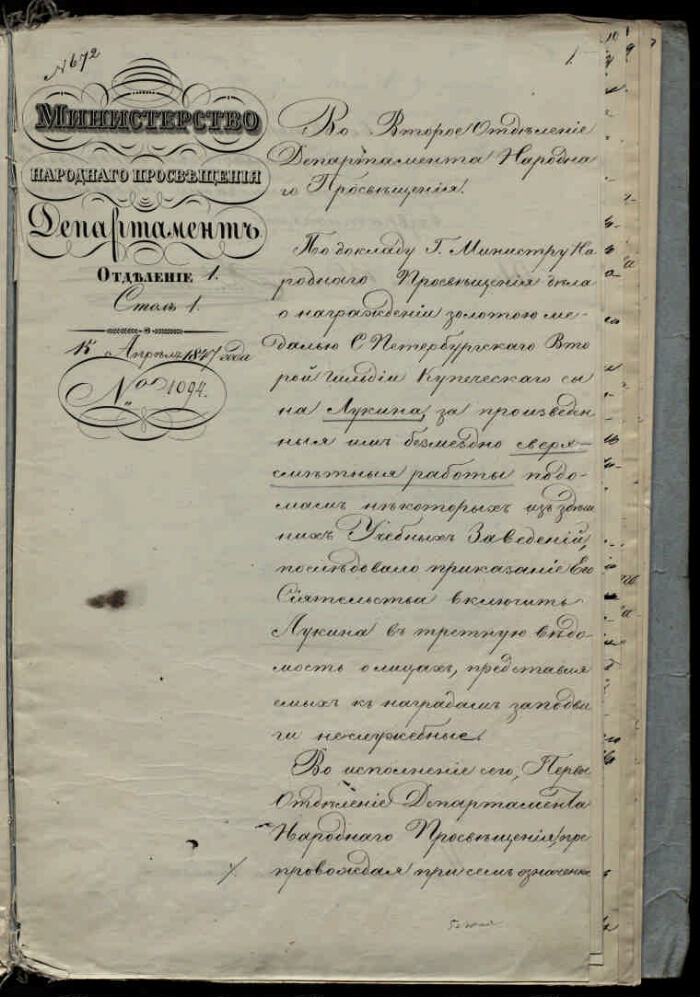 № 672
1.
Министерство
народнаго просвѣщенія
Департаментъ
Отдѣленіе 1.
Столъ 1.
15 Апрѣля 1847 года
№ 1094.
Во Второе Отдѣленіе
Департамента Народна
го Просвѣщенія.
По докладу Г. Министру На
роднаго Просвѣщенія дѣла
о награжденіи золотою ме-
далью С Петербургскаго Вто
рой гильдіи Купеческаго сы
на Лукина, за произведен
ныя имъ безмездно сверх-
смѣтныя работы по до-
мамъ нѣкоторыхъ изъ здѣш
нихъ Учебныхъ Заведеній,
послѣдовало приказаніе Его
Сіятельства включить
Лукина въ третную вѣдо-
мость о лицахъ, представля
емыхъ къ наградамъ за подви
ги неслужебные.
Во исполненіе сего, Первое
Отдѣленіе Департамента
Народнаго Просвѣщенія, пре
провождая при семъ означенное